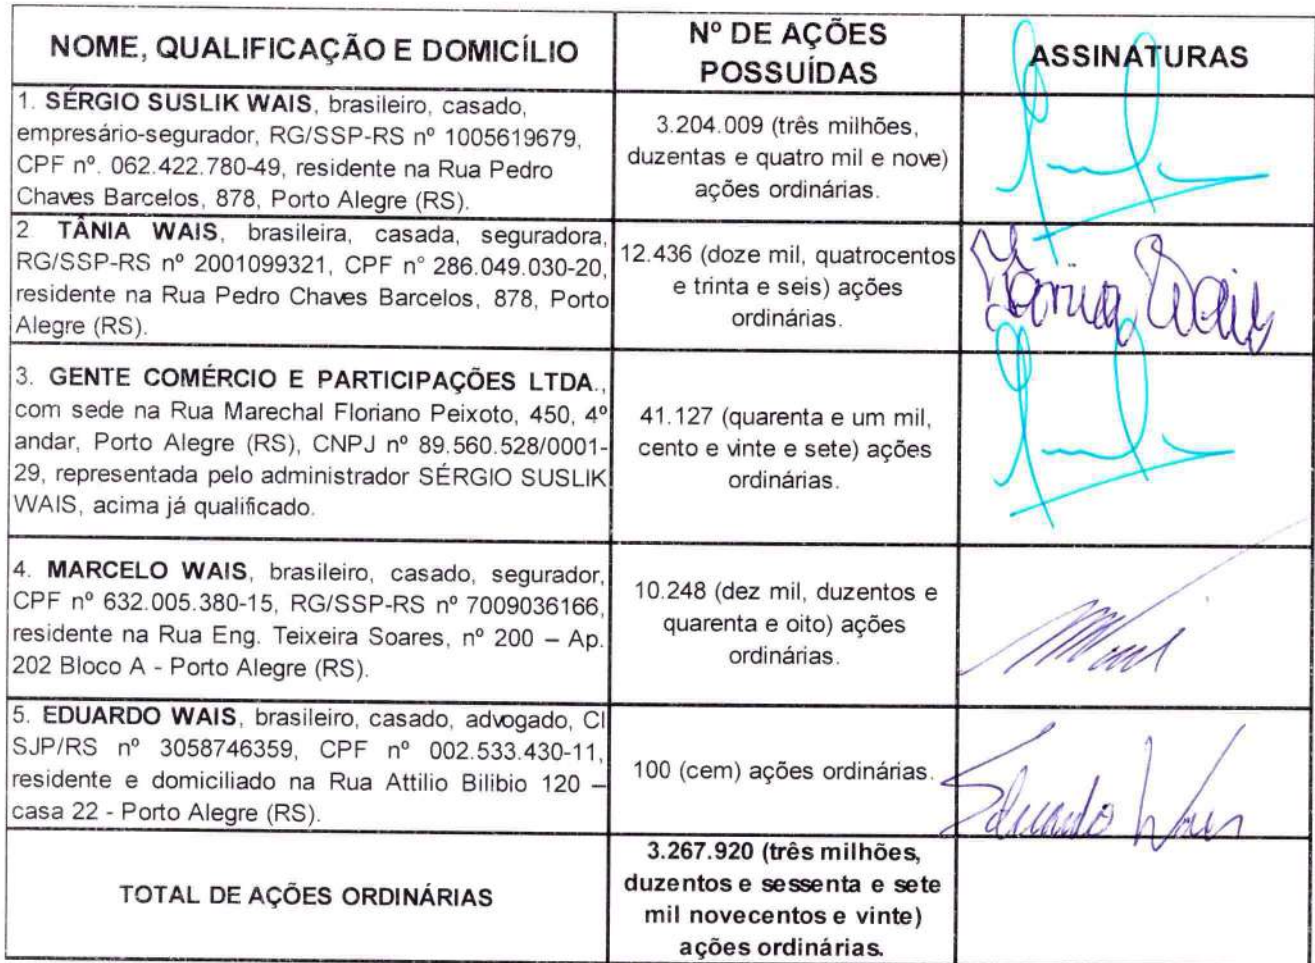 NOME, QUALIFICAÇÃO E DOMICÍLIO
Nº DE AÇÕES
POSSUÍDAS
ASSINATURAS
1. SÉRGIO SUSLIK WAIS, brasileiro, casado,
empresário-segurador, RG/SSP-RS nº 1005619679,
CPF nº. 062.422.780-49, residente na Rua Pedro
Chaves Barcelos, 878, Porto Alegre (RS).
3.204.009 (três milhões,
duzentas e quatro mil e nove)
ações ordinárias.
2. TÂNIA WAIS, brasileira, casada, seguradora,
RG/SSP-RS nº 2001099321, CPF n° 286.049.030-20,
residente na Rua Pedro Chaves Barcelos, 878, Porto
Alegre (RS).
12.436 (doze mil, quatrocentos
e trinta e seis) ações
ordinárias.
Tania Wais
3. GENTE COMÉRCIO E PARTICIPAÇÕES LTDA.,
com sede na Rua Marechal Floriano Peixoto, 450, 4º
andar, Porto Alegre (RS), CNPJ nº 89.560.528/0001-
29, representada pelo administrador SÉRGIO SUSLIK
WAIS, acima já qualificado.
41.127 (quarenta e um mil,
cento e vinte e sete) ações
ordinárias.
4. MARCELO WAIS, brasileiro, casado, segurador,
CPF nº 632.005.380-15, RG/SSP-RS nº 7009036166,
residente na Rua Eng. Teixeira Soares, nº 200 – Ap.
202 Bloco A - Porto Alegre (RS).
10.248 (dez mil, duzentos e
quarenta e oito) ações
ordinárias.
5. EDUARDO WAIS, brasileiro, casado, advogado, CI
SJP/RS nº 3058746359, CPF nº 002.533.430-11,
residente e domiciliado na Rua Attilio Bilibio 120 –
casa 22 - Porto Alegre (RS).
100 (cem) ações ordinárias.
Eduardo Wais
TOTAL DE AÇÕES ORDINÁRIAS
3.267.920 (três milhões,
duzentos e sessenta e sete
mil novecentos e vinte)
ações ordinárias.